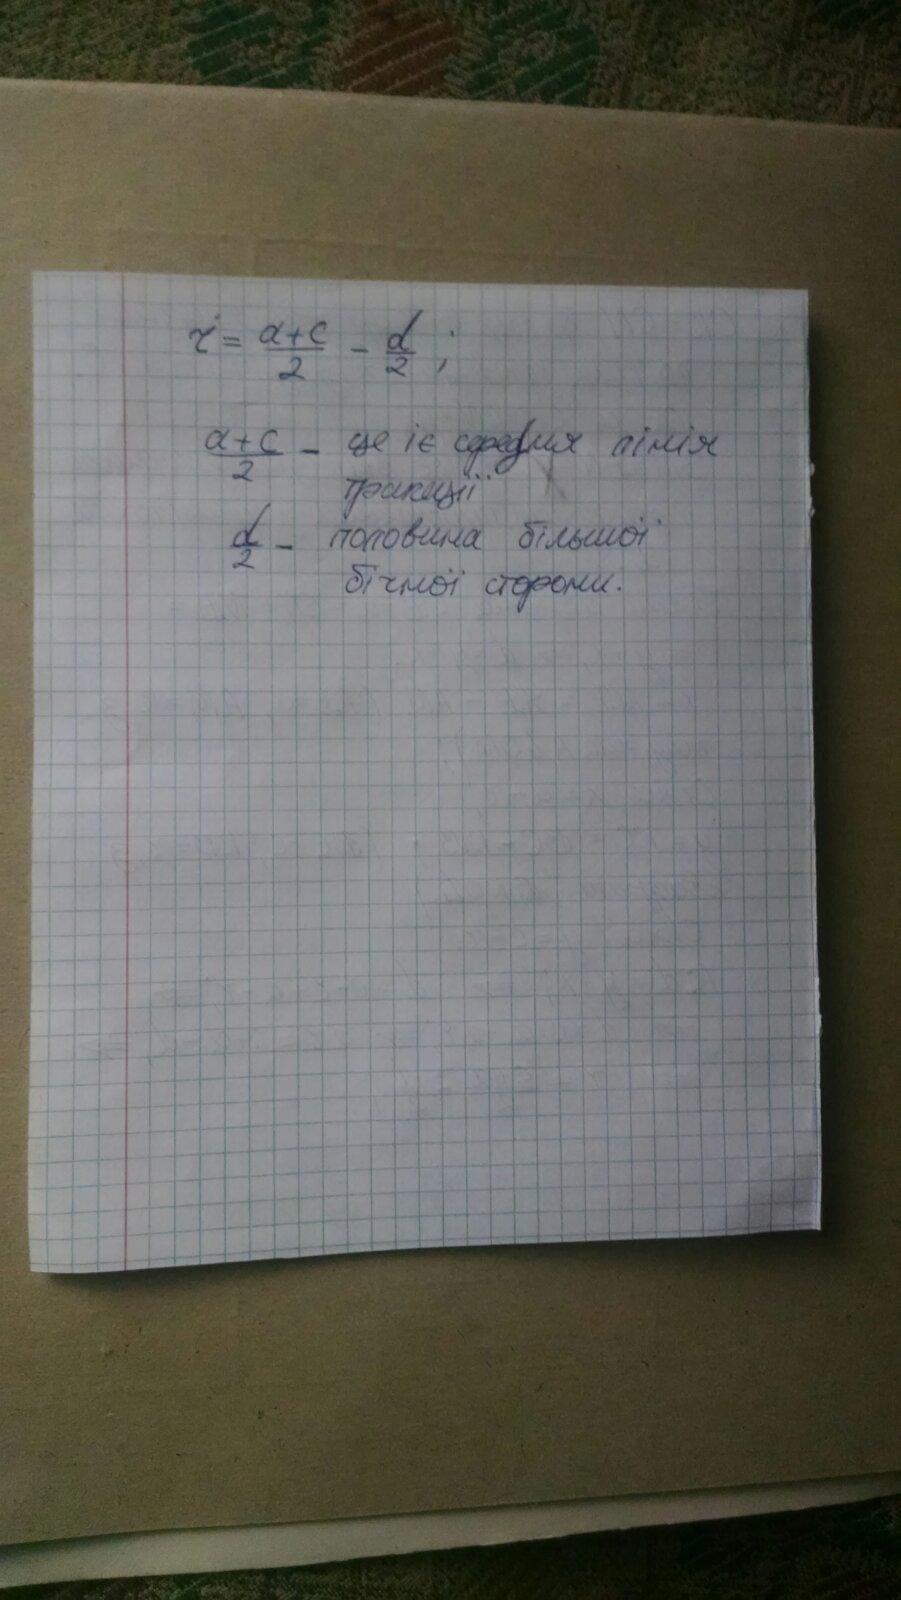 r = a+c/2 - d/2 ;
a+c/2 - це і є середня лінія
трапеції
d/2 - половина більшої
бічної сторони.